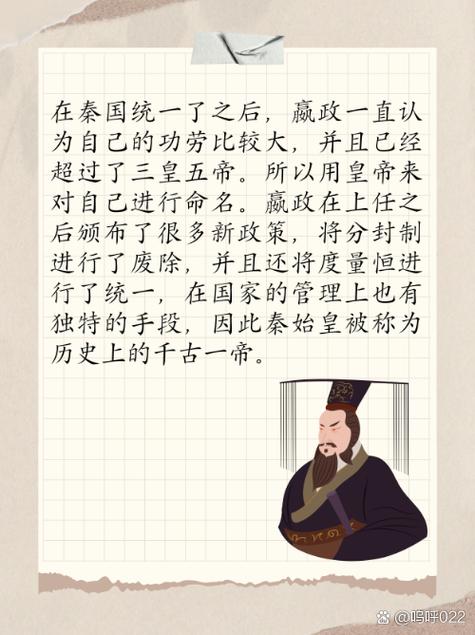 在秦国统一了之后，嬴政一直认
为自己的功劳比较大，并且已经
超过了三皇五帝。所以用皇帝来
对自己进行命名。嬴政在上任之
后颁布了很多新政策，将分封制
进行了废除，并且还将度量恒进
行了统一，在国家的管理上也有
独特的手段，因此秦始皇被称为
历史上的千古一帝。
@呜呼022